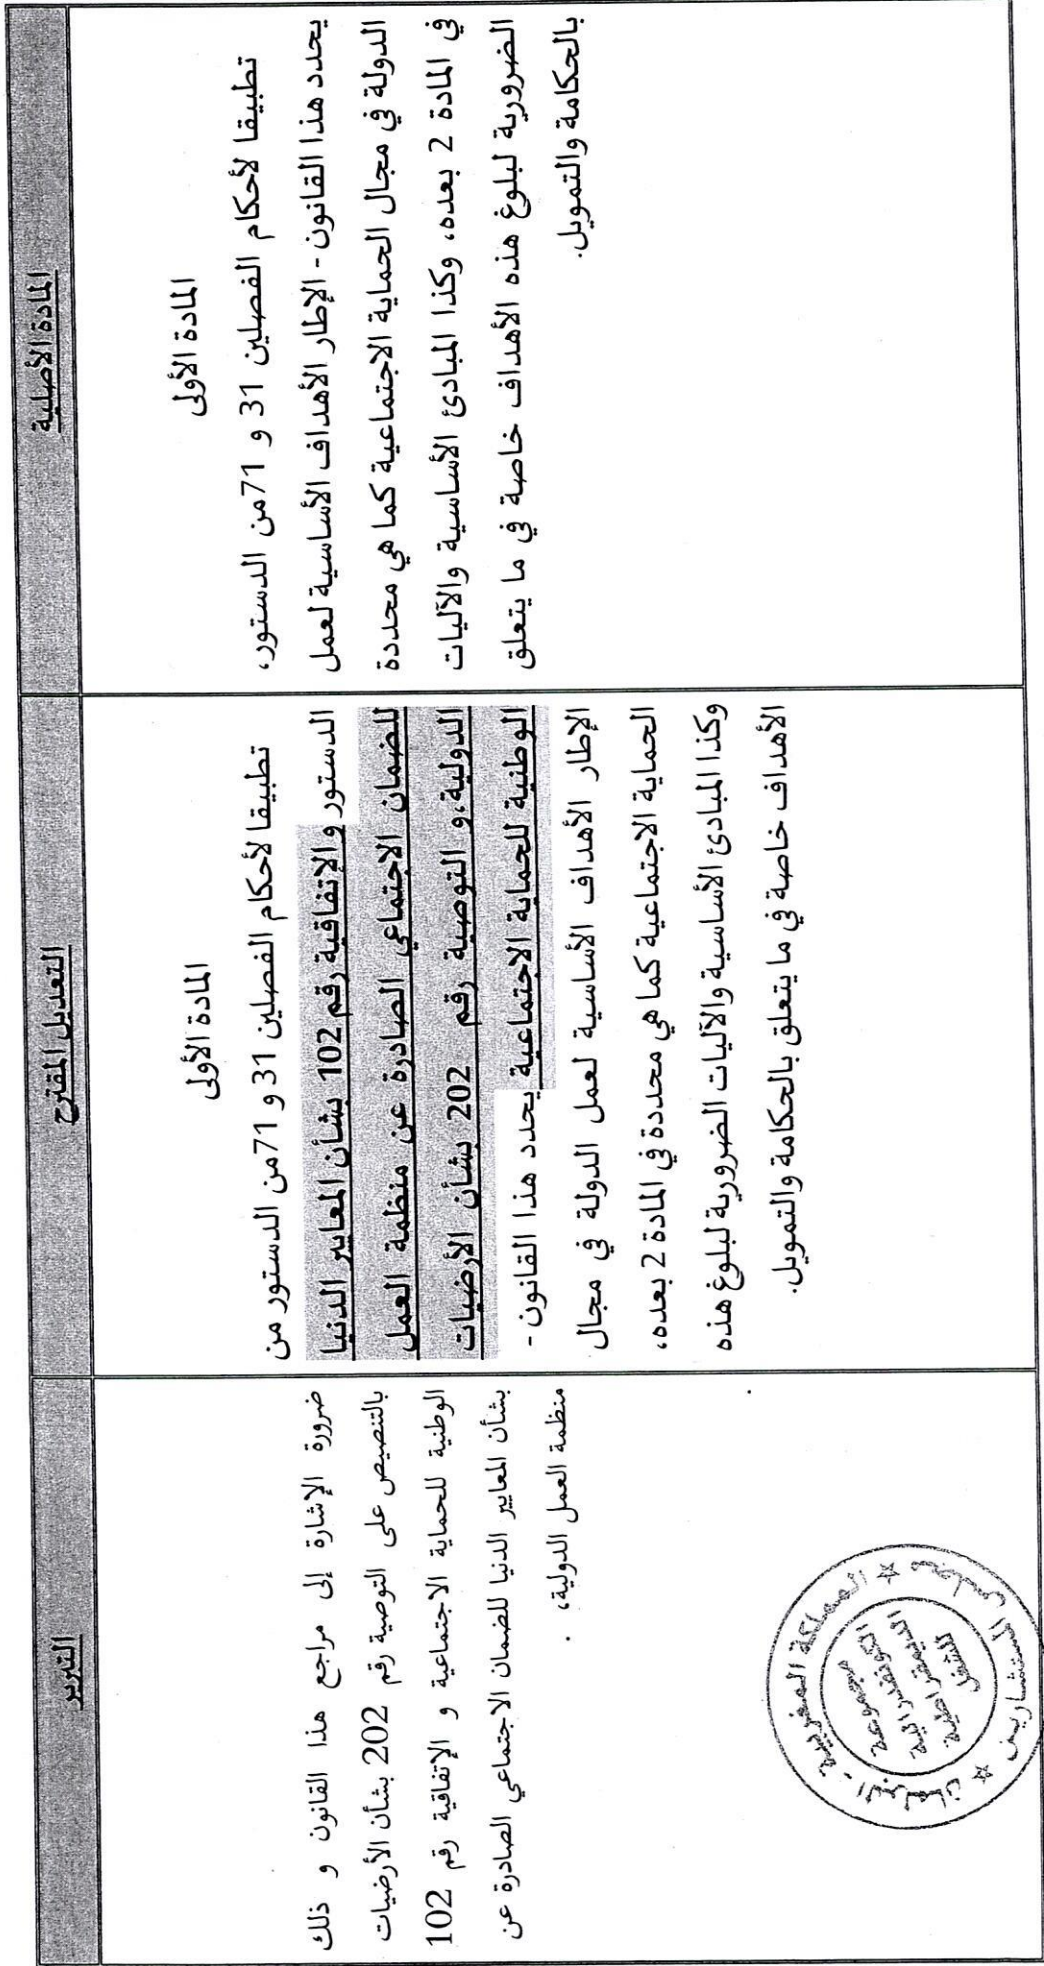 المادة الأصلية
المادة الأولى
تطبيقا لأحكام الفصلين 31 و 71من الدستور،
يحدد هذا القانون - الإطار الأهداف الأساسية لعمل
الدولة في مجال الحماية الاجتماعية كما هي محددة
في المادة 2 بعده، وكذا المبادئ الأساسية والآليات
الضرورية لبلوغ هذه الأهداف خاصة في ما يتعلق
بالحكامة والتمويل.
التعديل المقترح
المادة الأولى
تطبيقا لأحكام الفصلين 31 و 71من الدستور من
الدستور والإتفاقية رقم 102 بشأن المعايير الدنيا
للضمان الاجتماعي الصادرة عن منظمة العمل
الدولية،و التوصية رقم 202 بشأن الأرضيات
الوطنية للحماية الاجتماعية يحدد هذا القانون -
الإطار الأهداف الأساسية لعمل الدولة في مجال
الحماية الاجتماعية كما هي محددة في المادة 2 بعده،
وكذا المبادئ الأساسية والآليات الضرورية لبلوغ هذه
الأهداف خاصة في ما يتعلق بالحكامة والتمويل.
التبرير
ضرورة الإشارة إلى مراجع هذا القانون و ذلك
بالتنصيص على التوصية رقم 202 بشأن الأرضيات
الوطنية للحماية الاجتماعية و الإتفاقية رقم 102
بشأن المعايير الدنيا للضمان الاجتماعي الصادرة عن
منظمة العمل الدولية،
المملكة المغربية - البرلمان
مجلس المستشارين
مجموعة
الكونفدرالية
الديمقراطية
للشغل